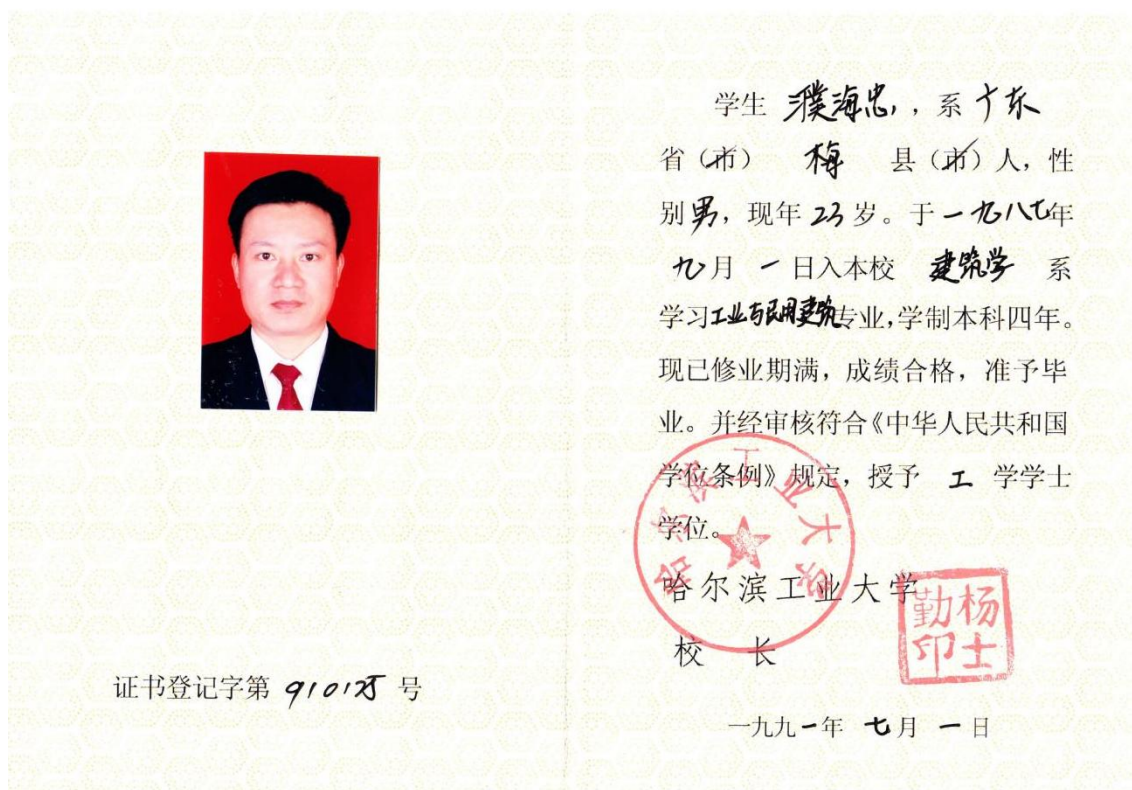 学生 濮海忠，系 广东
省（市） 梅 县（市）人，性
别男，现年 23 岁。于一九八七年
九月 一 日入本校 建筑学 系
学习工业与民用建筑专业，学制本科四年。
现已修业期满，成绩合格，准予毕
业。并经审核符合《中华人民共和国
学位条例》规定，授予 工 学学士
学位。
哈尔滨工业大学
哈尔滨工业大学
校 长
杨士勤印
证书登记字第 910125 号
一九九一年 七月 一 日